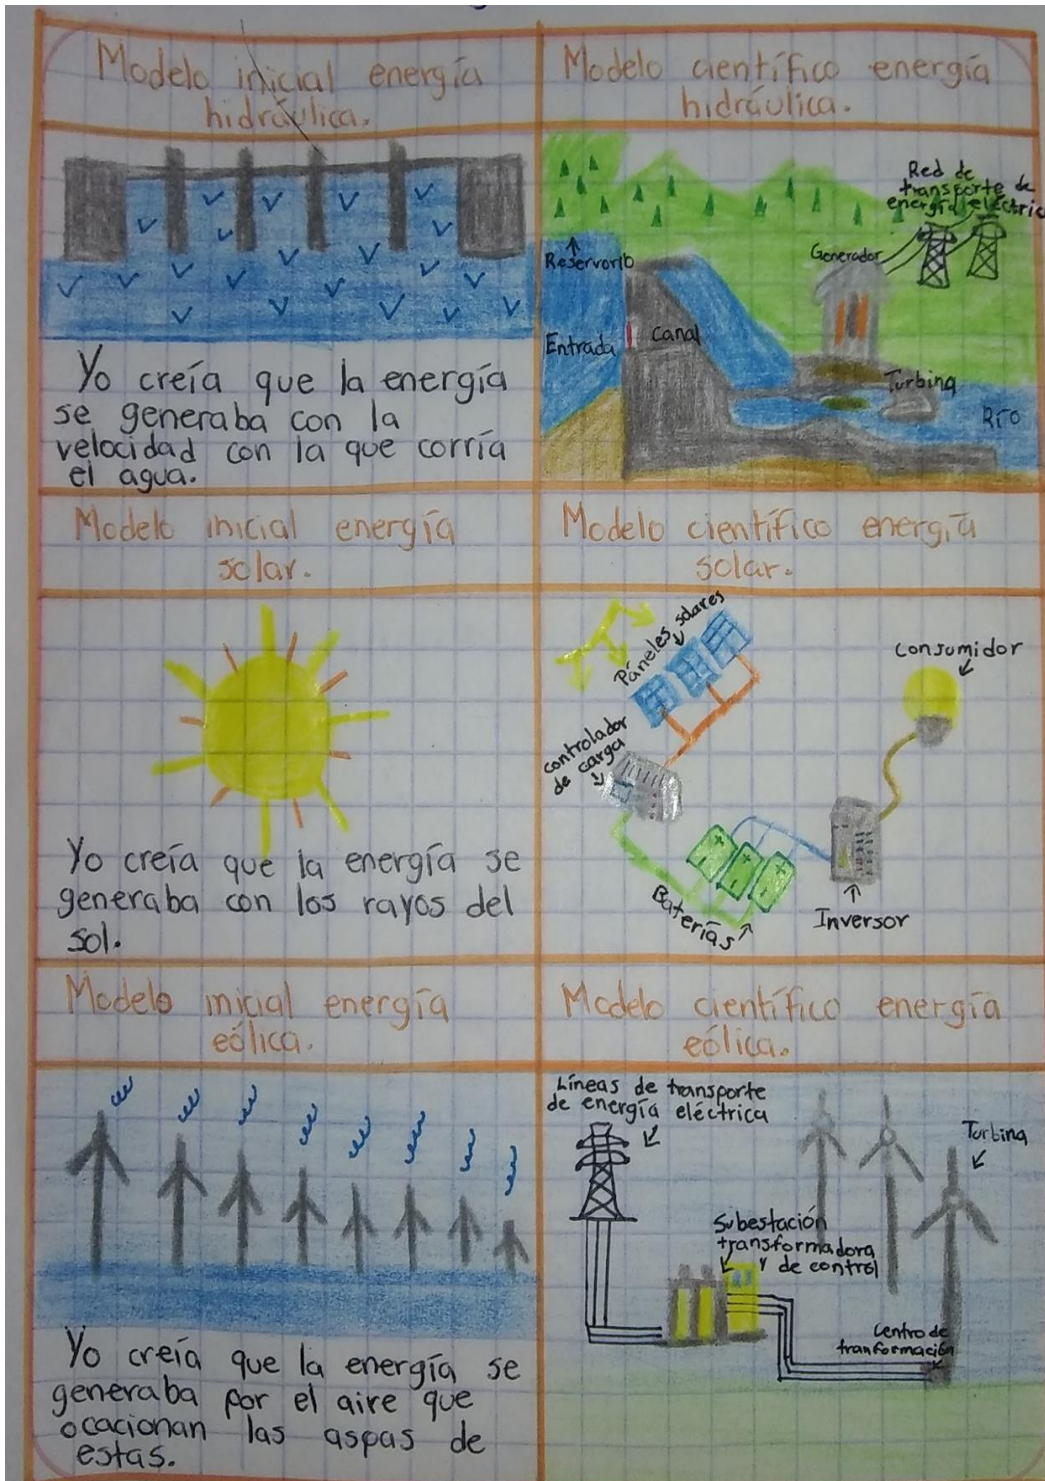 Modelo inicial energía
hidráulica.
Modelo científico energía
hidráulica.
Yo creía que la energía
se generaba con la
velocidad con la que corría
el agua.
Red de
transporte de
energía eléctric
Generador
Reservorio
Entrada
Canal
Turbina
Río
Modelo inicial energía
solar.
Modelo científico energía
solar.
Yo creía que la energía se
generaba con los rayos del
sol.
Páneles solares
Consumidor
controlador
de carga
Baterías
Inversor
Modelo inicial energía
eólica.
Modelo científico energía
eólica.
Yo creía que la energía se
generaba por el aire que
ocacionan las aspas de
estas.
Líneas de transporte
de energía eléctrica
Turbina
Subestación
transformadora
y de control
Centro de
tranformación